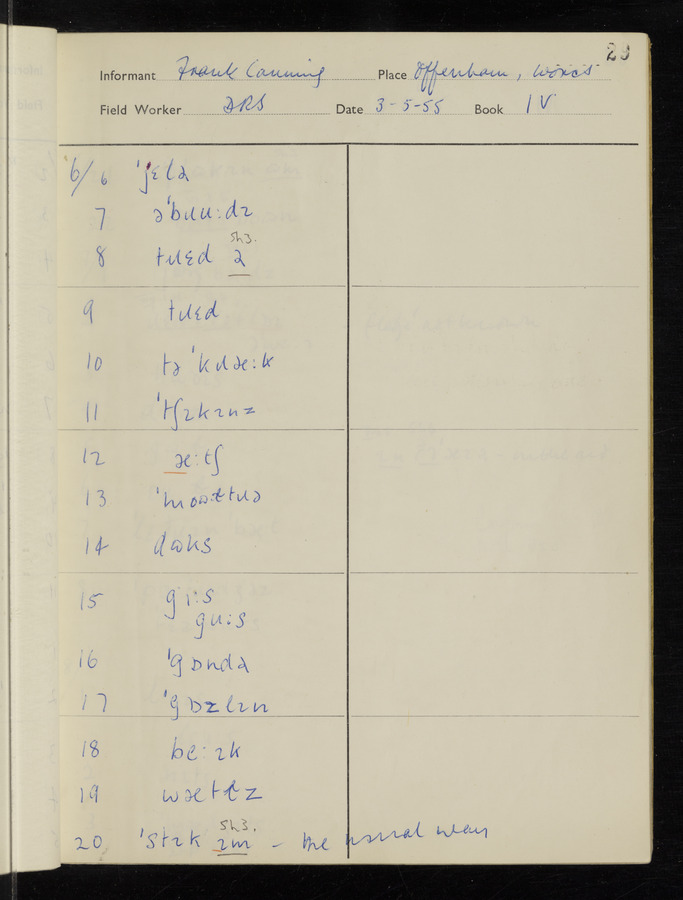 29
Informant Frank Canning Place Offenham, Worcs
Field Worker DRS Date 3-5-55 Book IV
6/6 ˈjɛlə
7 əˈbɹuːdɪ
sh3.
8 tɹɛd ə
9 tɹɛd
10 tə ˈkɹæːk
11 ˈtʃɪkɪnz
12 æːtʃ
13
14 dɒks
15 giːs
guːs
16 ˈgɒndə
17 ˈgɒzlɪn
18 beːɪk
19 wætlz
sh3.
20 ˈstɪk ɪm – the usual way